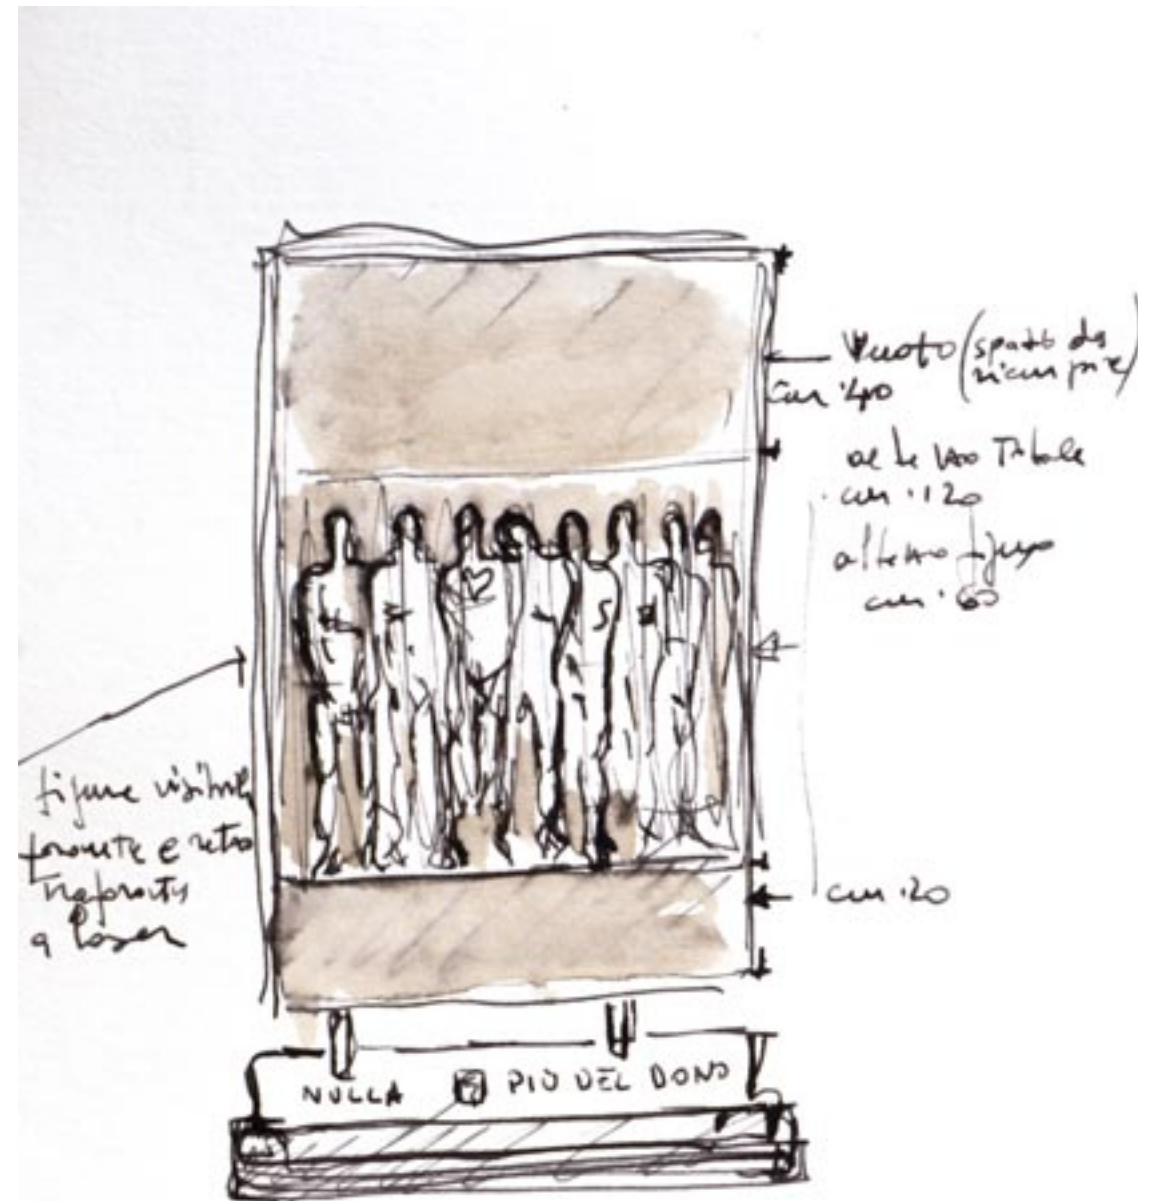 Vuoto (spazio da
riempire)
cm. 40
altezza Totale
cm. 120
altezza figure
cm. 60
figure visibili
fronte e retro
a laser
cm. 20
NULLA È PIÙ DEL DONO